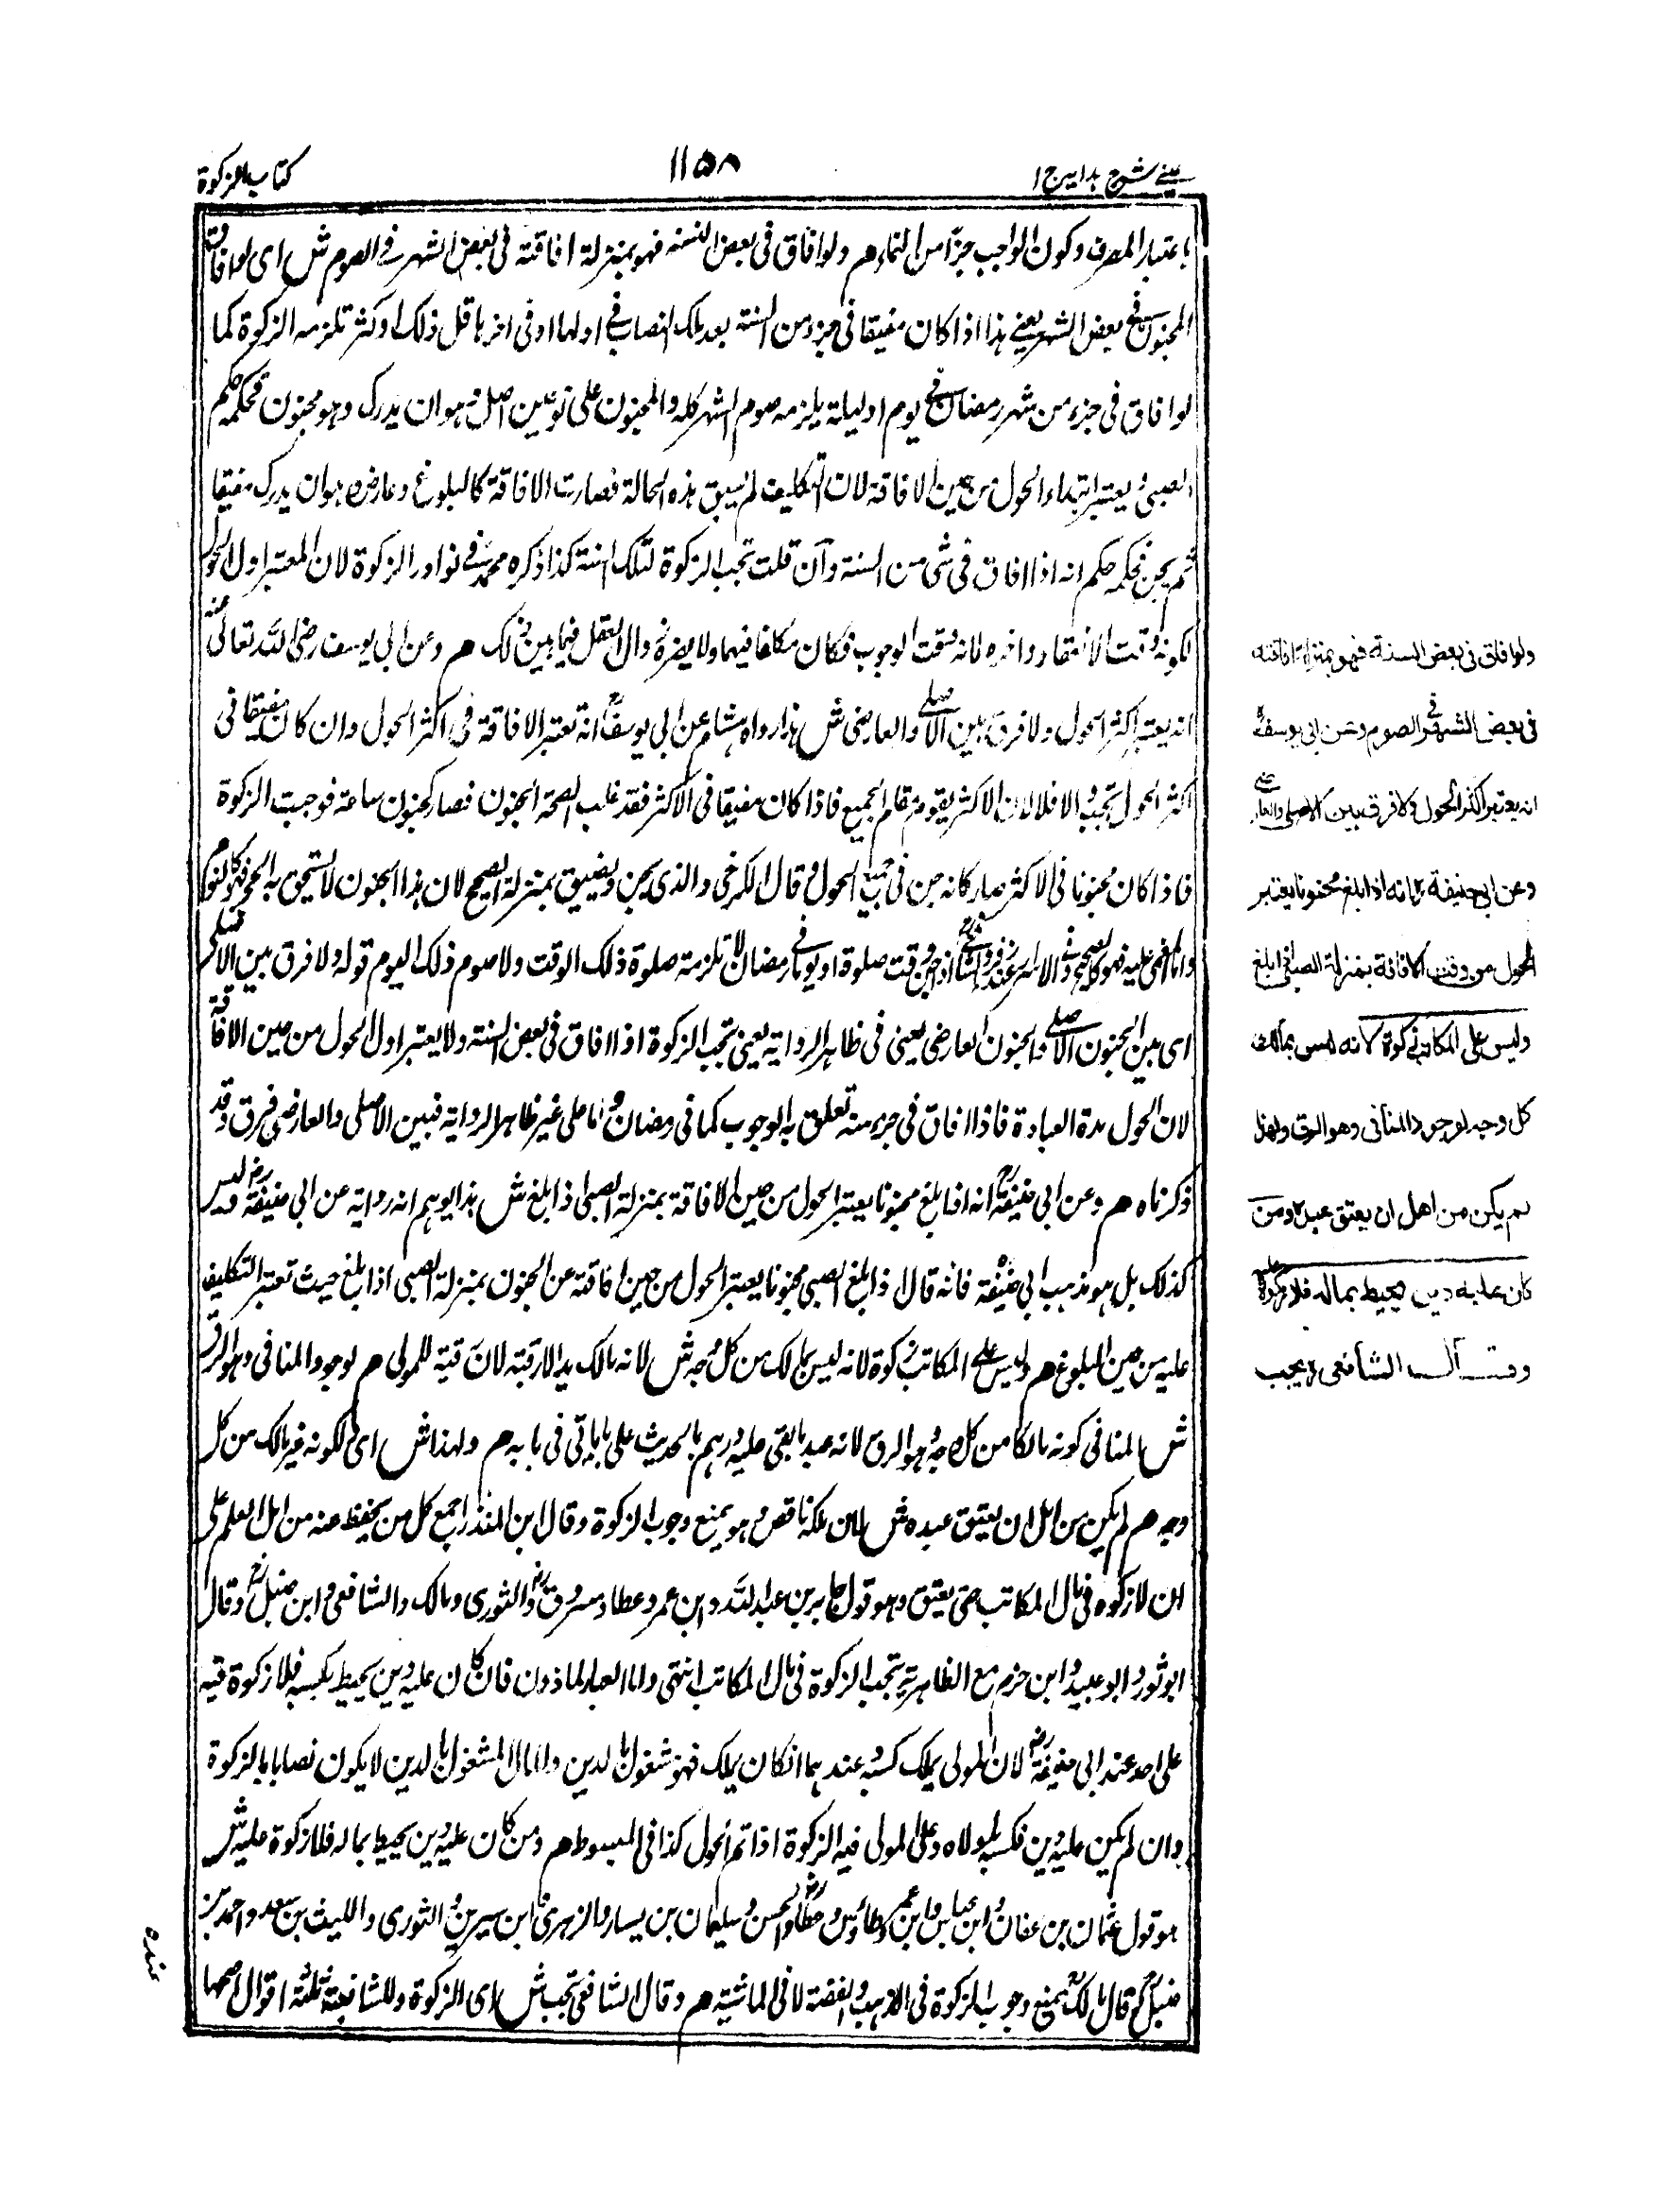 عيني شرح هدايہ ج ١
١١٥٨
كتاب الزكوة
باعتبار المصرف وكون الواجب جزأ من النماء هم ولو افاق في بعض السنه فهو بمنزلة افاقته في بعض الشهر في الصوم ش اى لو افاق
المجنون في بعض الشهر يعني هذا اذا كان مفيقا في جزء من السنة بعد ملك النصاب في اولها او في اخرها قل ذلك او كثر تلزمه الزكوة كما
لو افاق في جزء من شهر رمضان في يوم او ليلة يلزمه صوم الشهر كله والمجنون على نوعين اصلي وهو ان يدرك وهو مجنون فحكمه حكم
الصبي ويعتبر ابتداء الحول من حين الافاقة لان التكليف لم يسبق هذه الحالة فصارت الافاقة كالبلوغ وعارض وهو ان يدرك مفيقا
ثم يجن فحكمه حكم انه اذا افاق في شئ من السنة وان قلت تجب الزكوة لتلك السنة كذا ذكره محمد في نوادر الزكوة لان المعتبر اول الحول
لكونه وقت الانعقاد واخره لانه وقت الوجوب فكان مكلفا فيهما ولا يضر زوال العقل فيما بين ذلك هم وعن ابي يوسف رضى الله تعالى عنه
انه يعتبر اكثر الحول ولا فرق بين الاصلي والعارضي ش هذا رواه هشام عن ابي يوسف انه تعتبر الافاقة في اكثر الحول وان كان مفيقا في
اكثر الحول تجب والا فلا لان الاكثر يقوم مقام الجميع فاذا كان مفيقا في الاكثر فقد غلب الصحة الجنون فصار كجنون ساعة فوجبت الزكوة
فاذا كان مجنونا في الاكثر صار كانه جن في جميع الحول وقال الكرخي والذى يجن ويفيق بمنزلة الصحيح لان هذا الجنون لا يستحق به الحجر فهو كالنوم
واما المغمى عليه فهو كالصحيح وفي الاسرار عند زفر والشافعي اذا جن وقت صلوة او يوما في رمضان لا تلزمه صلوة ذلك الوقت ولا صوم ذلك اليوم قوله ولا فرق بين الاصلي
اى بين الجنون الاصلي والجنون العارضي يعنى في ظاهر الرواية يعنى تجب الزكوة اذا افاق في بعض السنة ولا يعتبر اول الحول من حين الافاقة
لان الحول مدة العبادة فاذا افاق في جزء منه تعلق به الوجوب كما في رمضان واما على غير ظاهر الرواية فبين الاصلى والعارضي فرق وقد
ذكرناه هم وعن ابي حنيفة انه اذا بلغ مجنونا يعتبر الحول من حين الافاقة بمنزلة الصبي اذا بلغ ش هذا يوهم انه رواية عن ابي حنيفة وليس
كذلك بل هو مذهب ابي حنيفة فانه قال اذا بلغ الصبي مجنونا يعتبر الحول من حين افاقته عن الجنون بمنزلة الصبي اذا بلغ حيث تعتبر التكليف
عليه من حين البلوغ هم وليس على المكاتب زكوة لانه ليس بمالك من كل وجه ش لانه مالك يدا لا رقبة لان رقبته للمولى هم لوجود المنافي وهو الرق
ش المنافي كونه مالكا من كل وجه هو الرق لانه عبد ما بقي عليه درهم بالحديث على ما ياتي في بابه هم ولهذا ش اى لكونه غير مالك من كل
وجه هم لم يكن من اهل ان يعتق عبده ش لان ملكه ناقص وهو يمنع وجوب الزكوة وقال ابن المنذر اجمع كل من يحفظ عنه من اهل العلم على
ان لا زكوة في مال المكاتب حتى يعتق وهو قول جابر بن عبد الله وابن عمر وعطاء ومسروق والثورى ومالك والشافعي وابن حنبل وقال
ابو ثور وابو عبيد وابن حزم مع الظاهرية تجب الزكوة في مال المكاتب انتهى واما العبد الماذون فان كان عليه دين يحيط بكسبه فلا زكوة فيه
على احد عند ابي حنيفة لان المولى يملك كسبه عندهما ان كان يملك فهو مشغول بالدين والمال المشغول بالدين لا يكون نصابا بالزكوة
وان لم يكن عليه دين فكسبه لمولاه وعلى المولى فيه الزكوة اذا تم الحول كذا في المبسوط هم ومن كان عليه دين يحيط بماله فلا زكوة عليه ش
هو قول عثمان بن عفان وابن عباس وابن عمر وطاؤس وعطاء والحسن وسليمان بن يسار والزهرى وابن سيرين والثورى والليث بن سعد واحمد بن
حنبل وقال مالك يمنع وجوب الزكوة في الذهب والفضة لا في الماشية هم وقال الشافعي تجب ش اى الزكوة وللشافعية ثلثة اقوال اصحها
عنده
ولو افاق في بعض السنة فهو بمنزلة افاقته
في بعض الشهر في الصوم وعن ابي يوسف
انه يعتبر اكثر الحول ولا فرق بين الاصلي والعارضي
وعن ابي حنيفة انه اذا بلغ مجنونا يعتبر
الحول من وقت الافاقة بمنزلة الصبي اذا بلغ
وليس على المكاتب زكوة لانه ليس بمالك
كل وجه لوجود المنافي وهو الرق ولهذا
لم يكن من اهل ان يعتق عبده ومن
كان عليه دين يحيط بماله فلا زكوة عليه
وقال الشافعي يجب